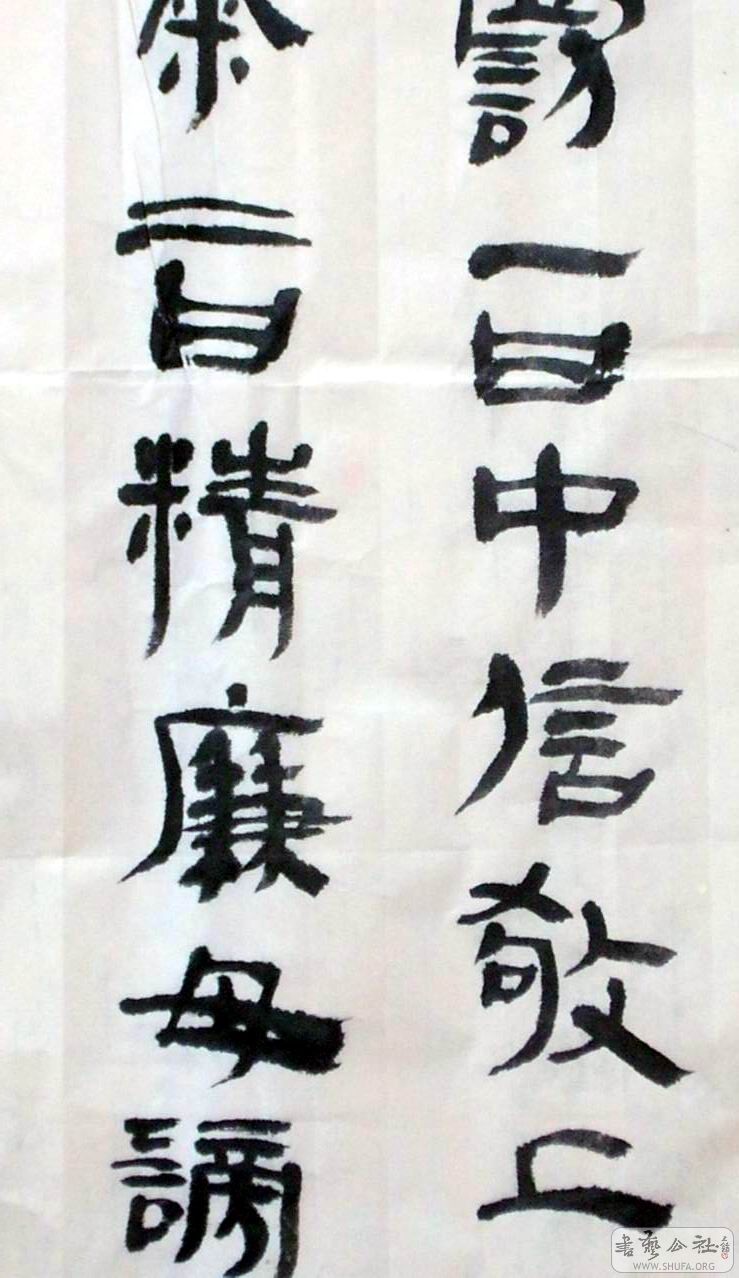 罰一曰中信敬上
二曰精廉毋謗
書藝公社
WWW.SHUFA.ORG